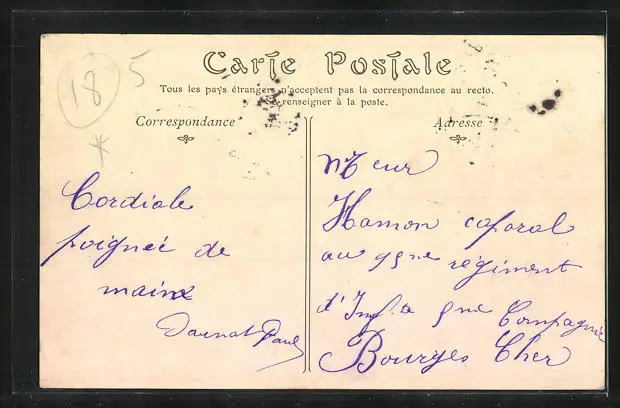 Carte Postale
Tous les pays étrangers n'acceptent pas la correspondance au recto.
Se renseigner à la poste.
18 5
Correspondance
Adresse
Cordiale
poignée de
mains
Darnat Paul
Mr eur
Hamon caporal
au 95me régiment
d'Inf.te 5me Compagnie
Bourges Cher